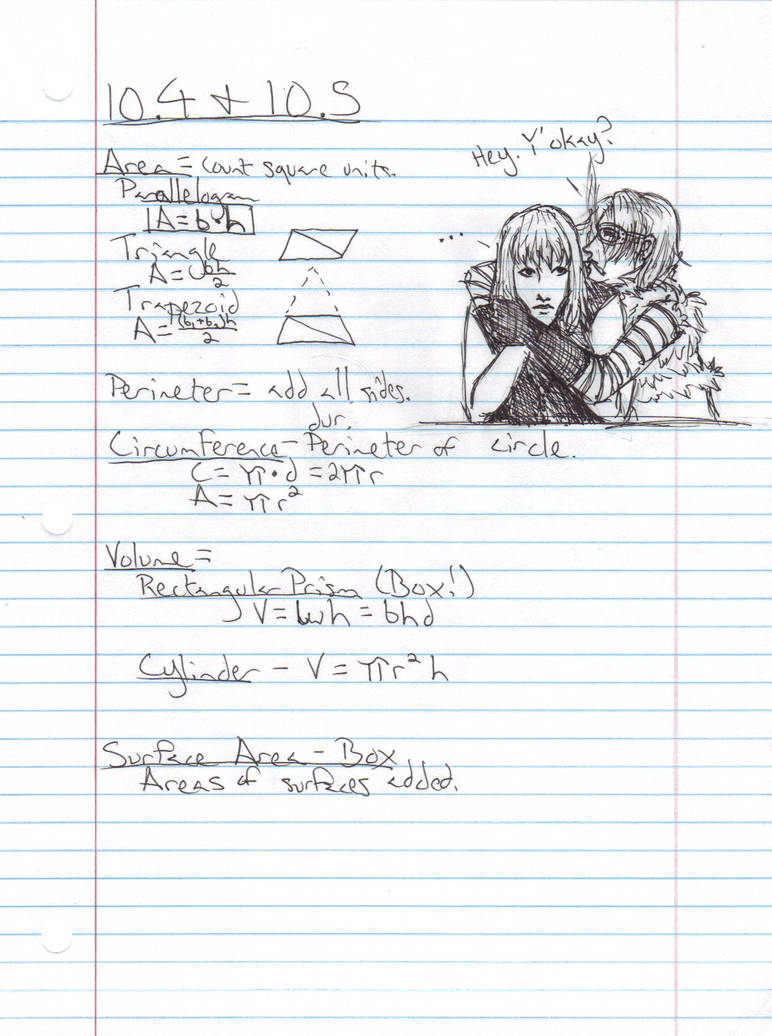 10.4 + 10.5
Hey. Y'okay?
Area = count square units.
Parallelogram
A = b·h
...
Triangle
A = bh/2
Trapezoid
A = (b₁+b₂)h/2
Perimeter = add all sides.
dur.
Circumference - Perimeter of circle.
C = π·d = 2πr
A = πr²
Volume =
Rectangular Prism (Box!)
V = lwh = bhd
Cylinder - V = πr²h
Surface Area - Box
Areas of surfaces added.